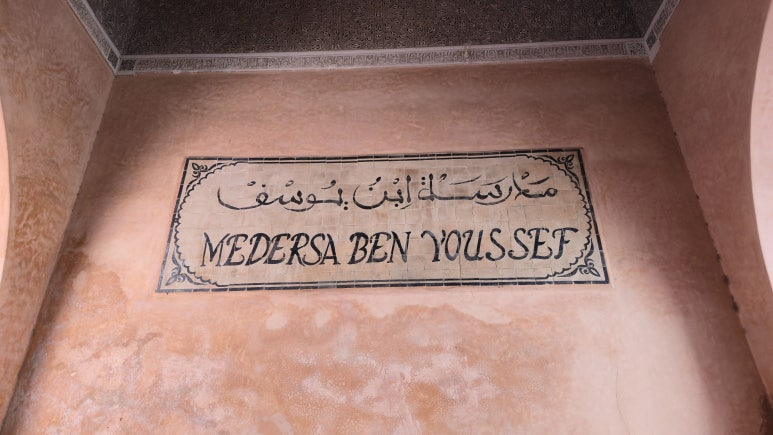 مَدْرَسَة اِبْنُ يُوسُفْ
MEDERSA BEN YOUSSEF